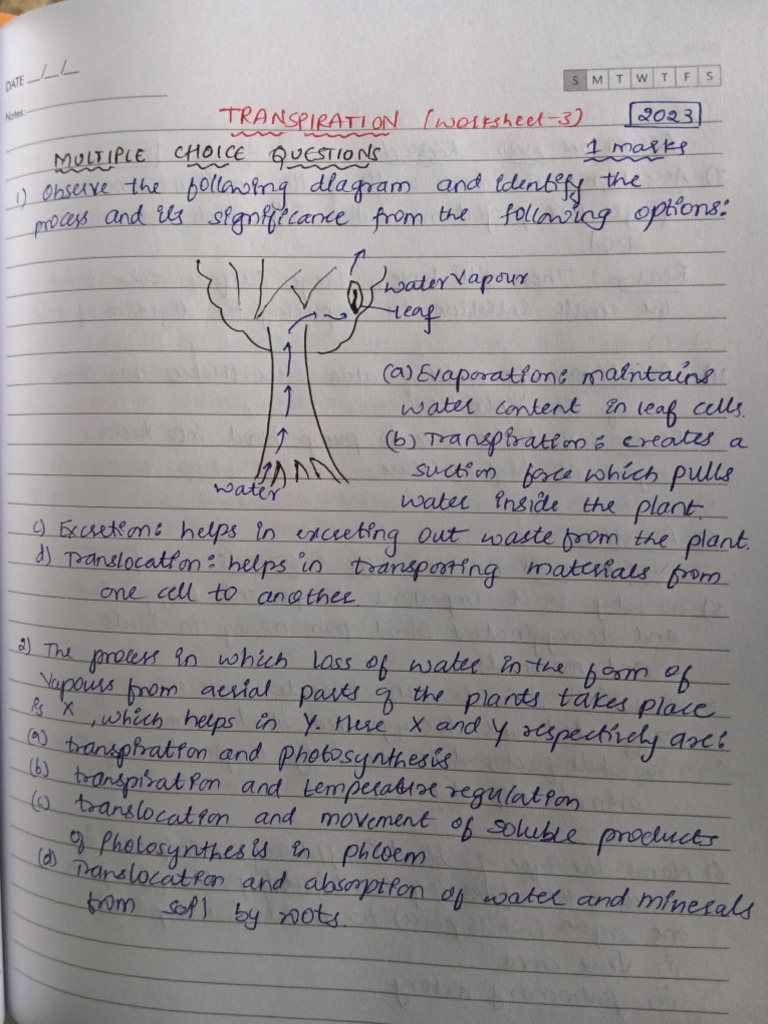 DATE _/_/_
S M T W T F S
Notes:
TRANSPIRATION (Worksheet-3) 2023
MULTIPLE CHOICE QUESTIONS 1 marks
1) Observe the following diagram and identify the
process and its significance from the following options:
water vapour
leaf
water
(a) Evaporation: maintains
water content in leaf cells.
(b) Transpiration: creates a
suction force which pulls
water inside the plant.
c) Excretion: helps in excreting out waste from the plant.
d) Translocation: helps in transporting materials from
one cell to another.
2) The process in which loss of water in the form of
vapours from aerial parts of the plants takes place
is X, which helps in Y. Here X and Y respectively are:
(a) transpiration and photosynthesis
(b) transpiration and temperature regulation
(c) translocation and movement of soluble products
of Photosynthesis in phloem
(d) Translocation and absorption of water and minerals
from soil by roots.